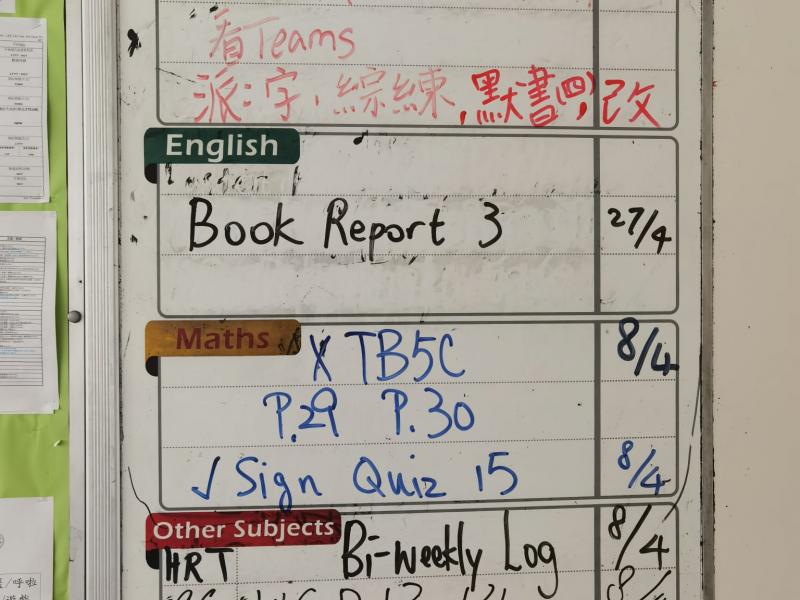 看Teams
派:字,綜練,默書(四),改
English
Book Report 3 27/4
Maths
X TB5C 8/4
P.29 P.30
√ Sign Quiz 15 8/4
Other Subjects
HRT Bi-weekly Log 8/4